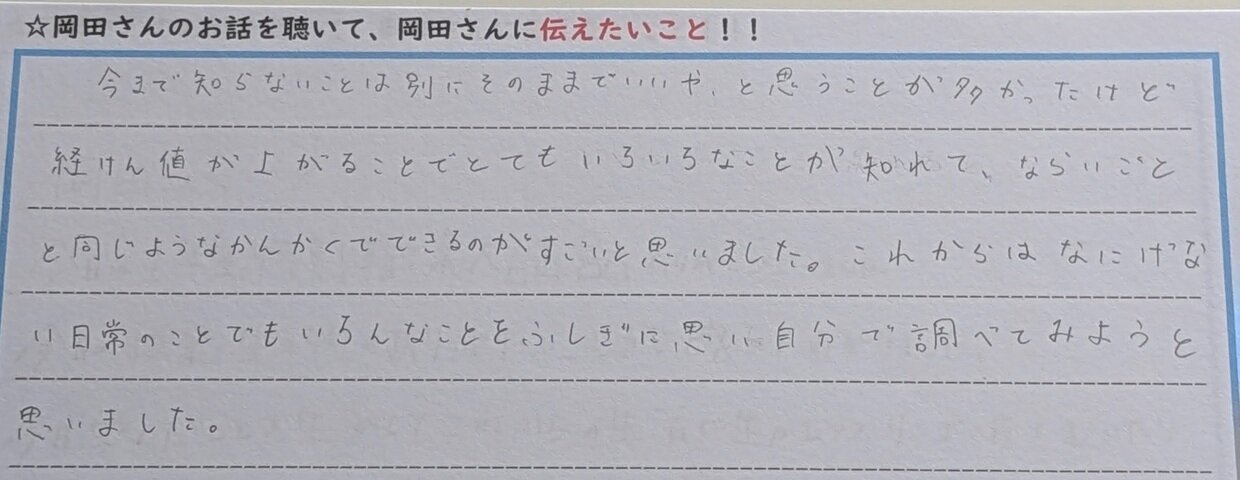 ☆岡田さんのお話を聴いて、岡田さんに伝えたいこと！！
今まで知らないことは別にそのままでいいや、と思うことが多かったけど
経けん値が上がることでとてもいろいろなことが知れて、ならいごと
と同じようなかんかくでできるのがすごいと思いました。これからはなにげな
い日常のことでもいろんなことをふしぎに思い自分で調べてみようと
思いました。